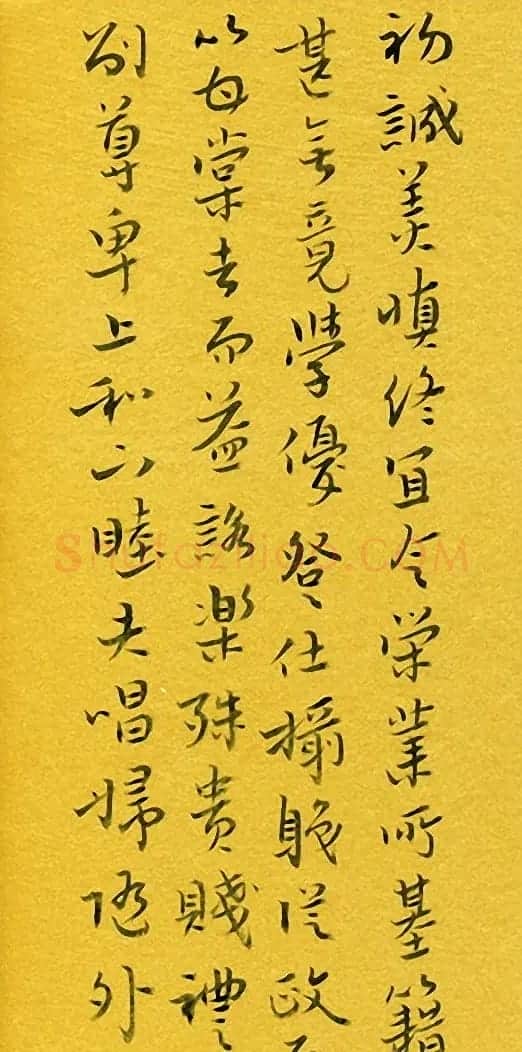 初誠美慎終宜令榮業所基籍
甚無竟學優登仕攝職從政
以甘棠去而益詠樂殊貴賤禮
別尊卑上和下睦夫唱婦隨外